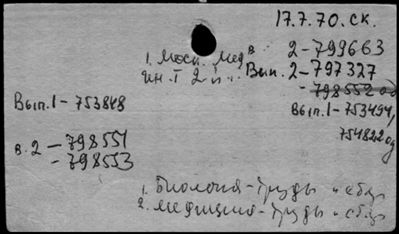 17.7.70.ск.
1. Моск. Мед
в 2-799663
ин.т 2
Вып. 2-797327
798552 од
Вып. 1-753848
Вып. 1-753454,
754822 од
в. 2 - 798551
- 798553
1. Биология - труды и сб.
2. Медицина - труды и сб.